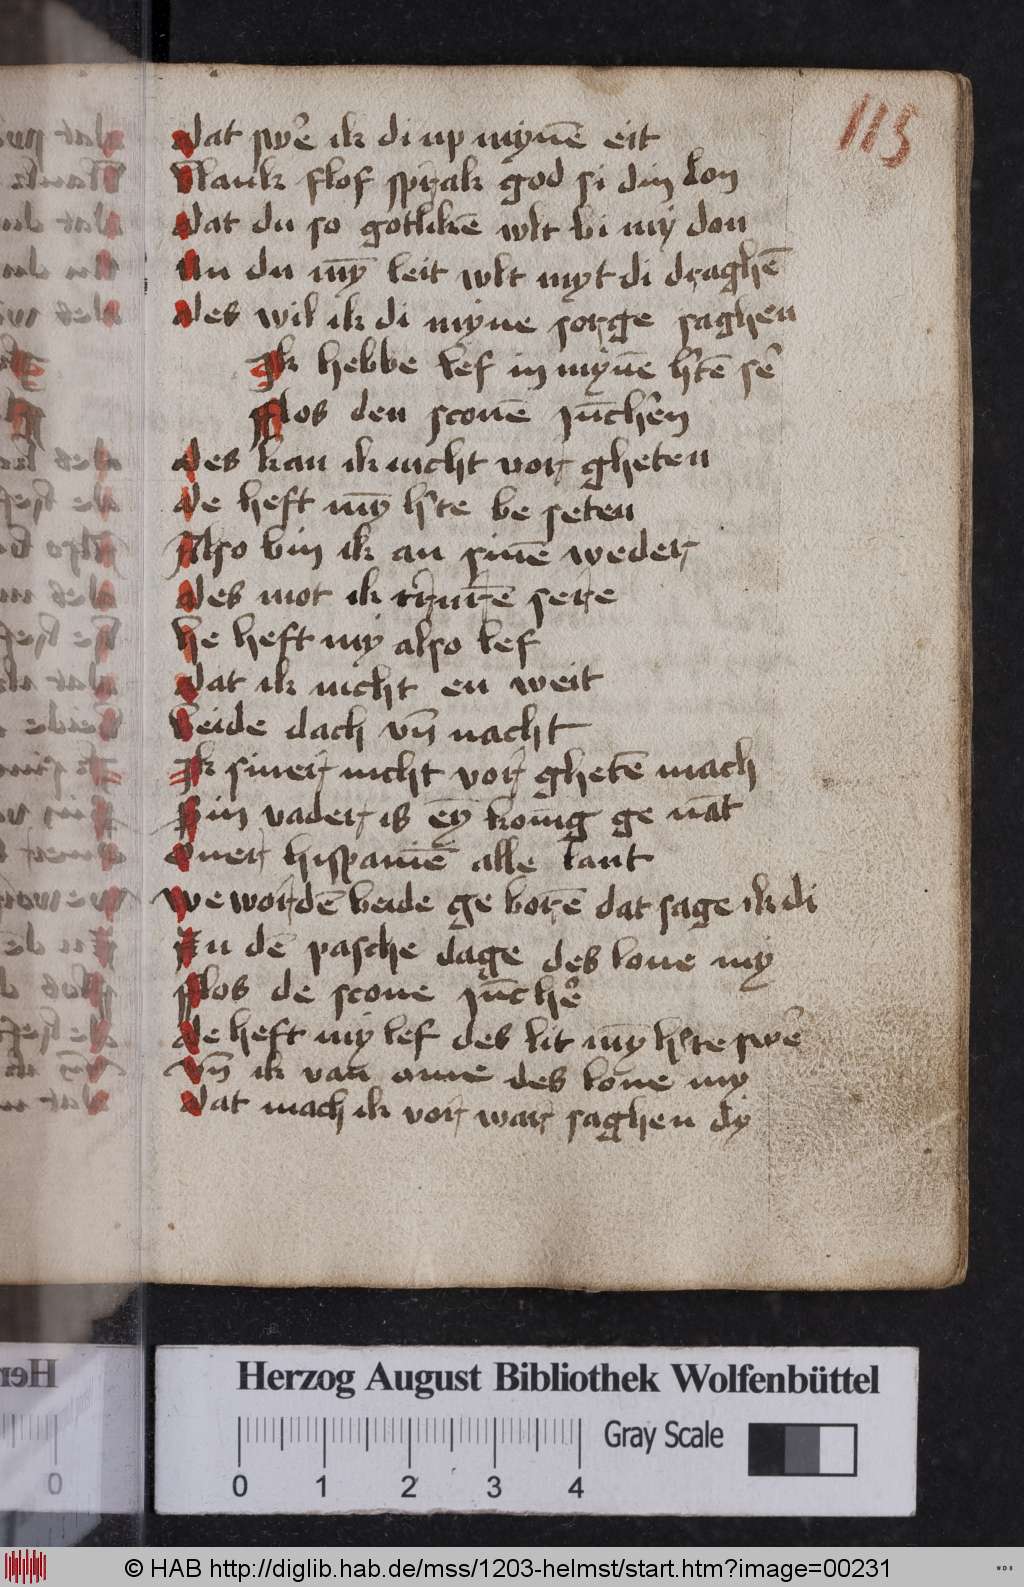 115
dat swe͛ ik di up mynē eit
Blank flof sprak god si din lon
dat du so gotlikē wlt bi my don
Un du my̅ leit wlt myt di draghē
des wil ik di myne sorge saghen
Ik hebbe lef in mynē h͛tē se͛
flos den sconē iu̅ch͛en
des kan ik nicht vor gheten
de heft my̅ h͛te be seten
Also bin ik an sinē weder
des mot ik trurē sere
he heft my also lef
dat ik nicht en weit
beide dach vn̅ nacht
Ik siner nicht vor ghetē mach
Sin vader is ey̅ konīg ge nāt
ouer hispaniē alle lant
we wordē beide ge borē dat sage ik di
In dē pasche dage des loue my
flos de scone iu̅che͛
de heft my lef des lit my̅ h͛te swe͛
vn̅ ik van eme des loue my
dat mach ik vor war saghen dy
Herzog August Bibliothek Wolfenbüttel
0 1 2 3 4
Gray Scale
© HAB http://diglib.hab.de/mss/1203-helmst/start.htm?image=00231